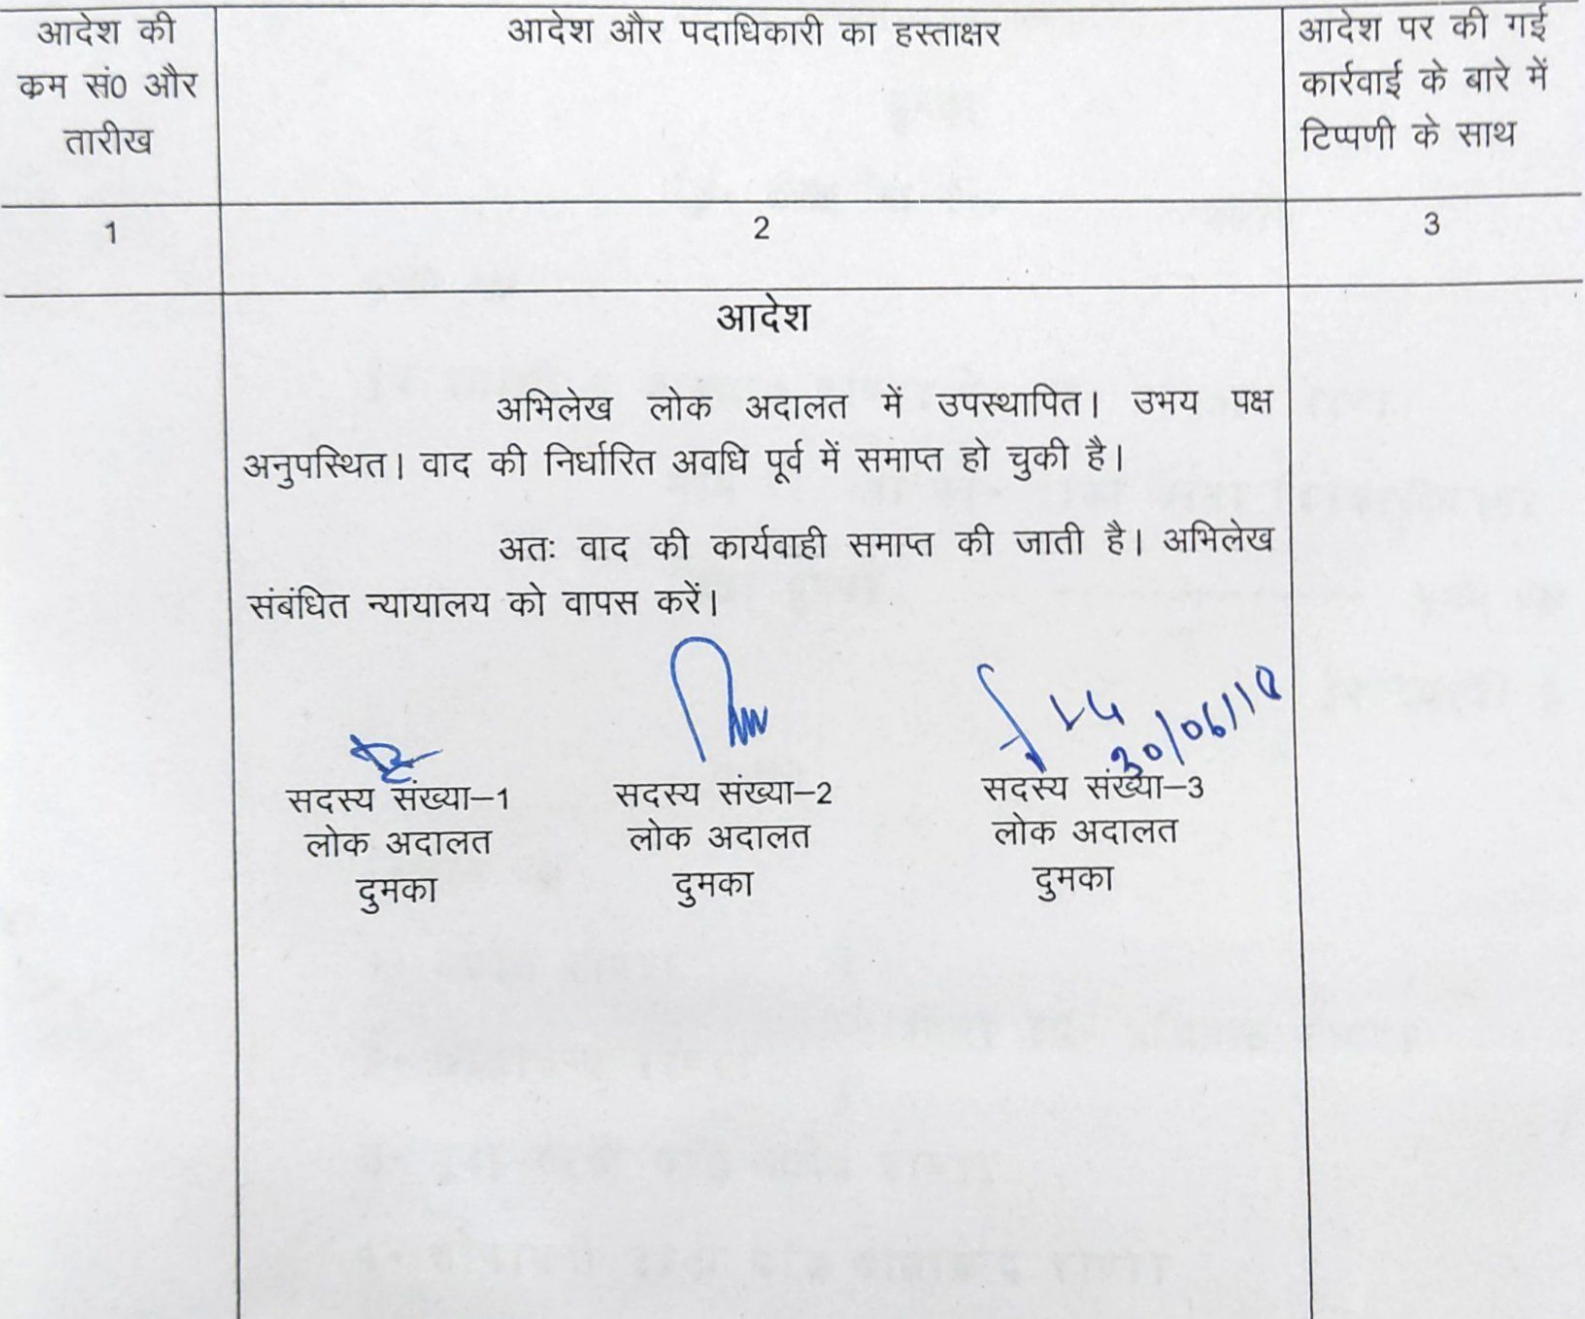 आदेश की
क्रम सं0 और
तारीख
आदेश और पदाधिकारी का हस्ताक्षर
आदेश पर की गई
कार्रवाई के बारे में
टिप्पणी के साथ
1
2
3
आदेश
अभिलेख लोक अदालत में उपस्थापित। उभय पक्ष
अनुपस्थित। वाद की निर्धारित अवधि पूर्व में समाप्त हो चुकी है।
अतः वाद की कार्यवाही समाप्त की जाती है। अभिलेख
संबंधित न्यायालय को वापस करें।
30/06/18
सदस्य संख्या–1
लोक अदालत
दुमका
सदस्य संख्या–2
लोक अदालत
दुमका
सदस्य संख्या–3
लोक अदालत
दुमका